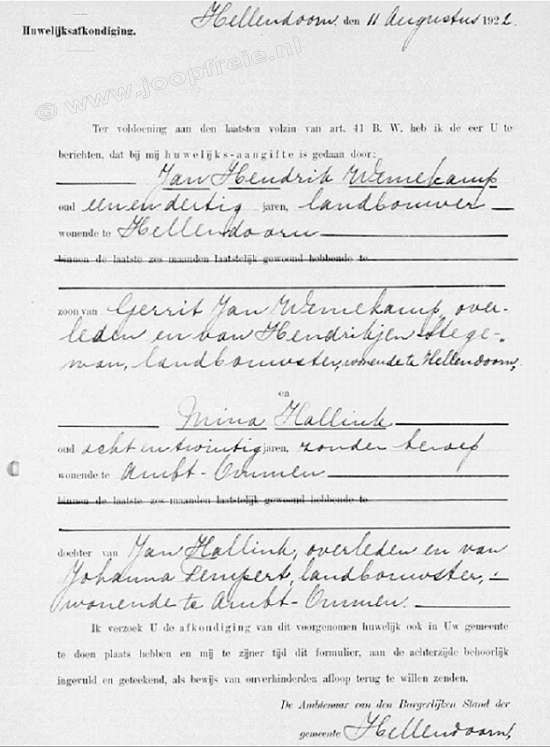 Hellendoorn, den 11 Augustus 1922.
Huwelijksafkondiging.
© www.joopfreie.nl
Ter voldoening aan den laatsten volzin van art. 41 B. W. heb ik de eer U te
berichten, dat bij mij huwelijks-aangifte is gedaan door:
Jan Hendrik Wemekamp
oud eenendertig jaren, landbouwer
wonende te Hellendoorn
binnen de laatste zes maanden laatstelijk gewoond hebbende te
zoon van Gerrit Jan Wemekamp, over-
leden en van Hendrikjen Stege-
man, landbouwster, wonende te Hellendoorn,
en
Mina Hallink
oud achtentwintig jaren, zonder beroep
wonende te Ambt-Ommen
binnen de laatste zes maanden laatstelijk gewoond hebbende te
dochter van Jan Hallink, overleden en van
Johanna Lempert, landbouwster,
wonende te Ambt-Ommen.
Ik verzoek U de afkondiging van dit voorgenomen huwelijk ook in Uw gemeente
te doen plaats hebben en mij te zijner tijd dit formulier, aan de achterzijde behoorlijk
ingevuld en geteekend, als bewijs van onverhinderden afloop terug te willen zenden.
De Ambtenaar van den Burgerlijken Stand der
gemeente Hellendoorn,